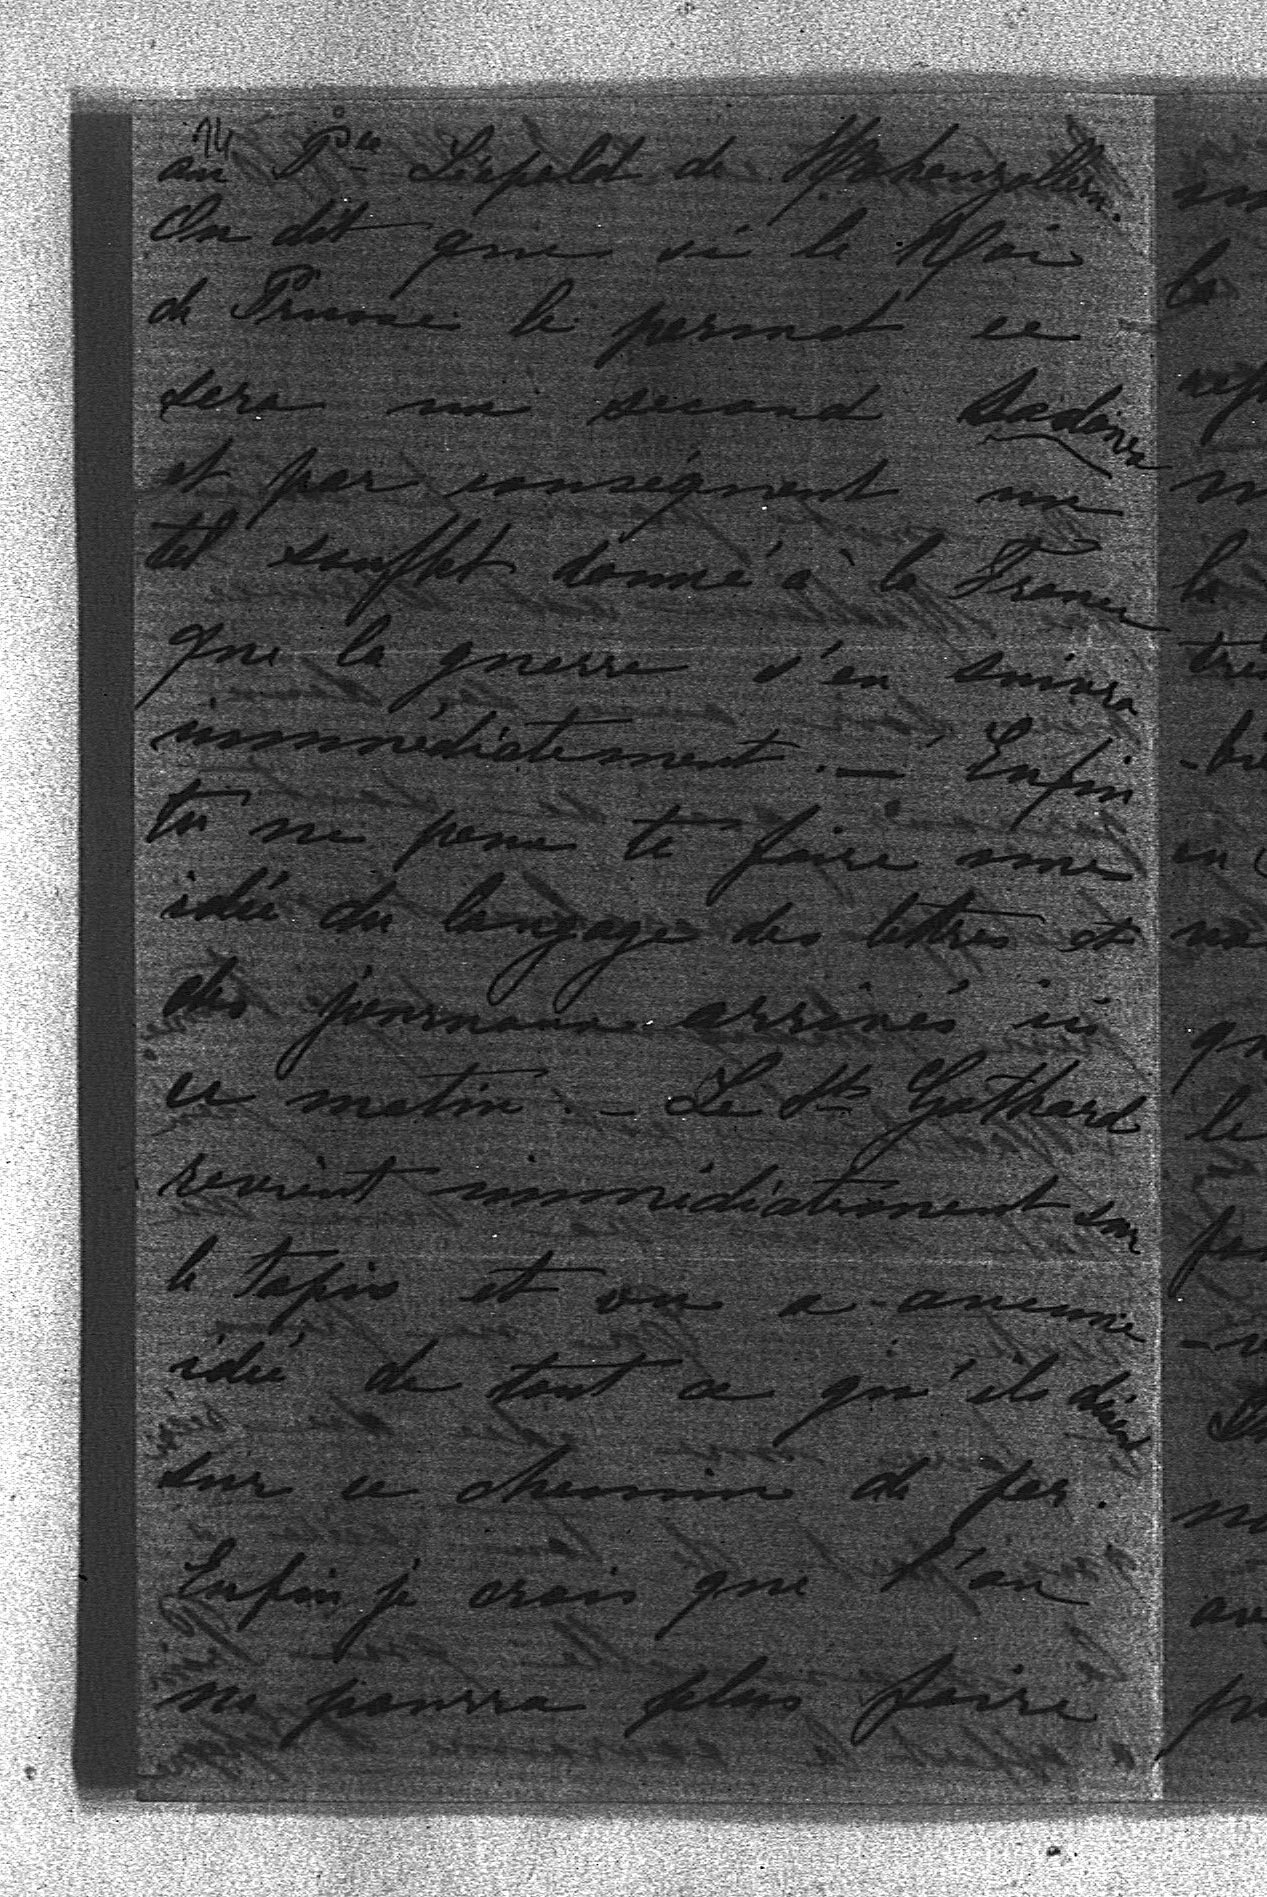 14
au Pce Léopold de Hohenzollern.
On dit que si le Roi
de Prusse le permet ce
sera un second Sadowa
et par conséquent un
tel soufflet donné à la France
que la guerre s'en suivra
immédiatement. — Enfin
tu ne peux te faire une
idée du langage des lettres et
des journaux arrivés ici
ce matin. — Le St Gothard
revient immédiatement sur
le tapis et on a aucune
idée de tout ce qu'ils disent
sur ce chemin de fer.
Enfin je crois que l'on
ne pourra plus faire